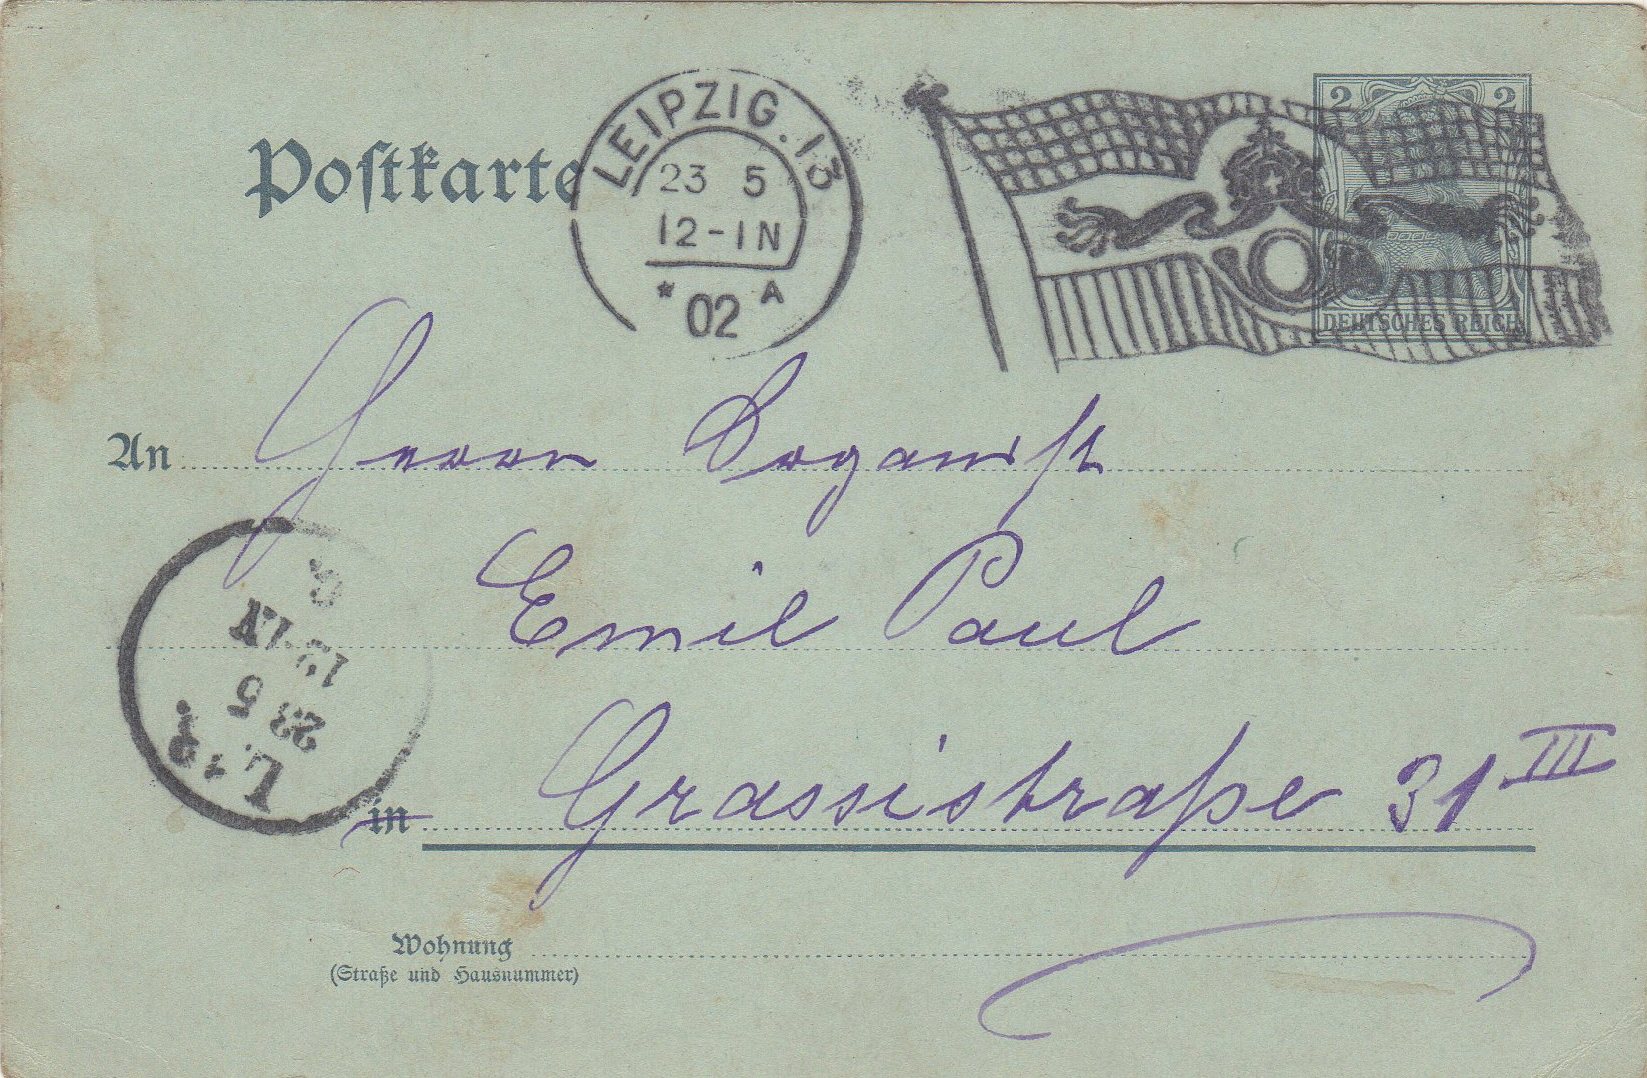 Postkarte
LEIPZIG. 13
23 5
12-1N
* 02 A
2 2
DEUTSCHES REICH
An Herrn Organist
Emil Paul
in Grassistraße 31 III
L. 13
23 5
12-1N
Wohnung
(Straße und Hausnummer)